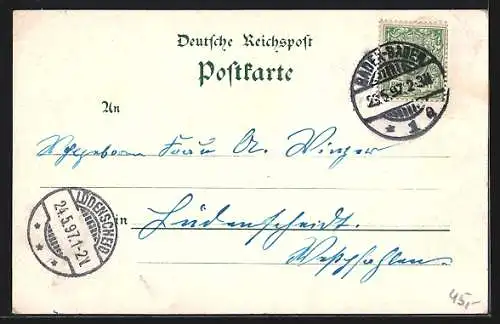 Deutsche Reichspost
Postkarte
BADEN-BADEN
23.5.97. 2-3N.
* 1 a
An
Wohlgeboren Frau A. Winzer
in Lüdenscheidt.
Westphalen.
LÜDENSCHEID
24.5.97.1-2N
* * *
45,-